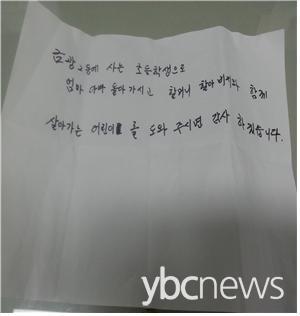 금광2동에 사는 초등학생으로
엄마 아빠 돌아가시고 할머니 할아버지와 함께
살아가는 어린이를 도와 주시면 감사 하겠습니다.
ybcnews